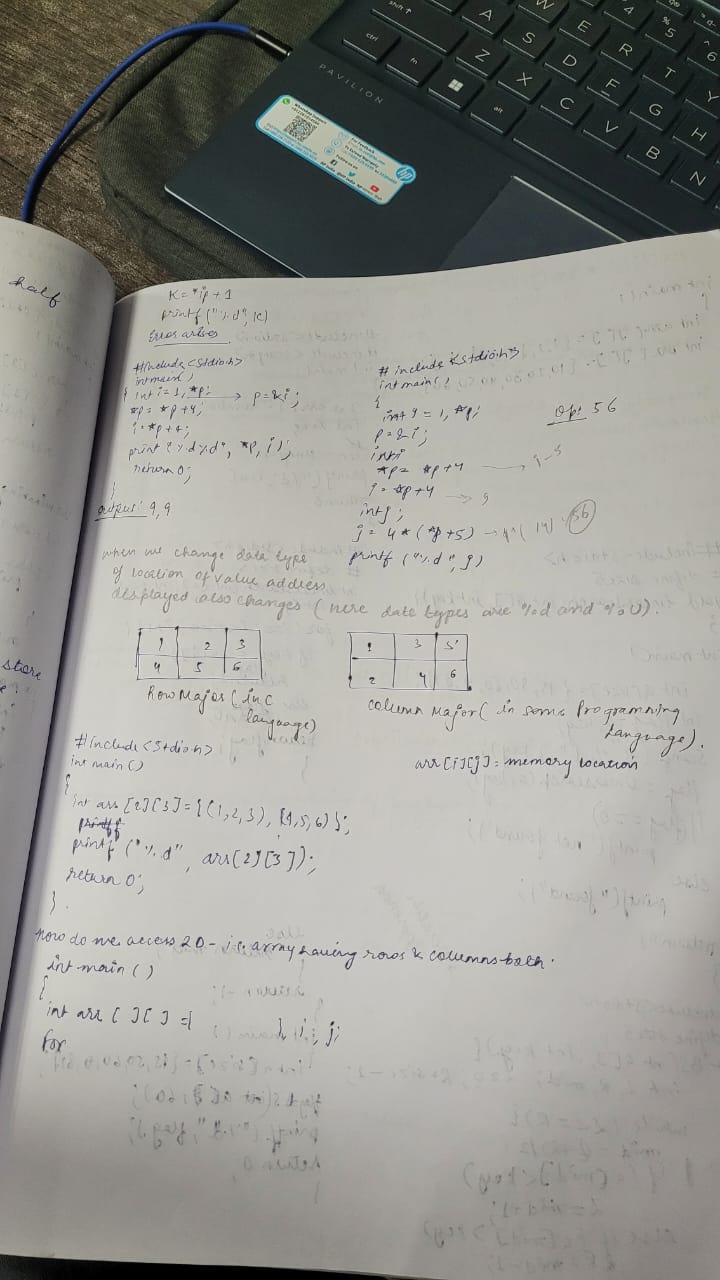 PAVILION
shift
ctrl
fn
alt
W E R T Y
A S D F G H
Z X C V B N
4 % 5 ^ 6
hp
half
store
K = *ip + 1
printf ("%d", K)
Error arises
#include <stdio.h>
int main( )
{ int i = 1, *p; → p = &i;
*p = *p + 4;
i = *p + 4;
print ("%d%d", *p, i);
return 0;
}
output: 9, 9
# include <stdio.h>
int main( )
{
int i = 1, *p; Op: 56
p = &i;
*p = *p + 4
i = *p + 4 → 9
int j;
j = 4 * (*p + 5) → 4*( 14) 56
printf ("%d", j)
when we change data type
of location of value address
displayed also changes ( here data types are %d and %U).
1 2 3
4 5 6
Row Major ( in C
language)
1 3 5
2 4 6
Column Major ( in some Programming
Language).
arr [i][j] = memory location
#include <stdio.h>
int main ( )
{
int arr [2][3] = { (1,2,3), {4,5,6} };
printf
printf ("%d", arr[2][3]);
return 0;
}.
How do we access 2D - i.e. array having rows & columns both.
int main ( )
{
int arr [ ][ ] = { } i, j;
for